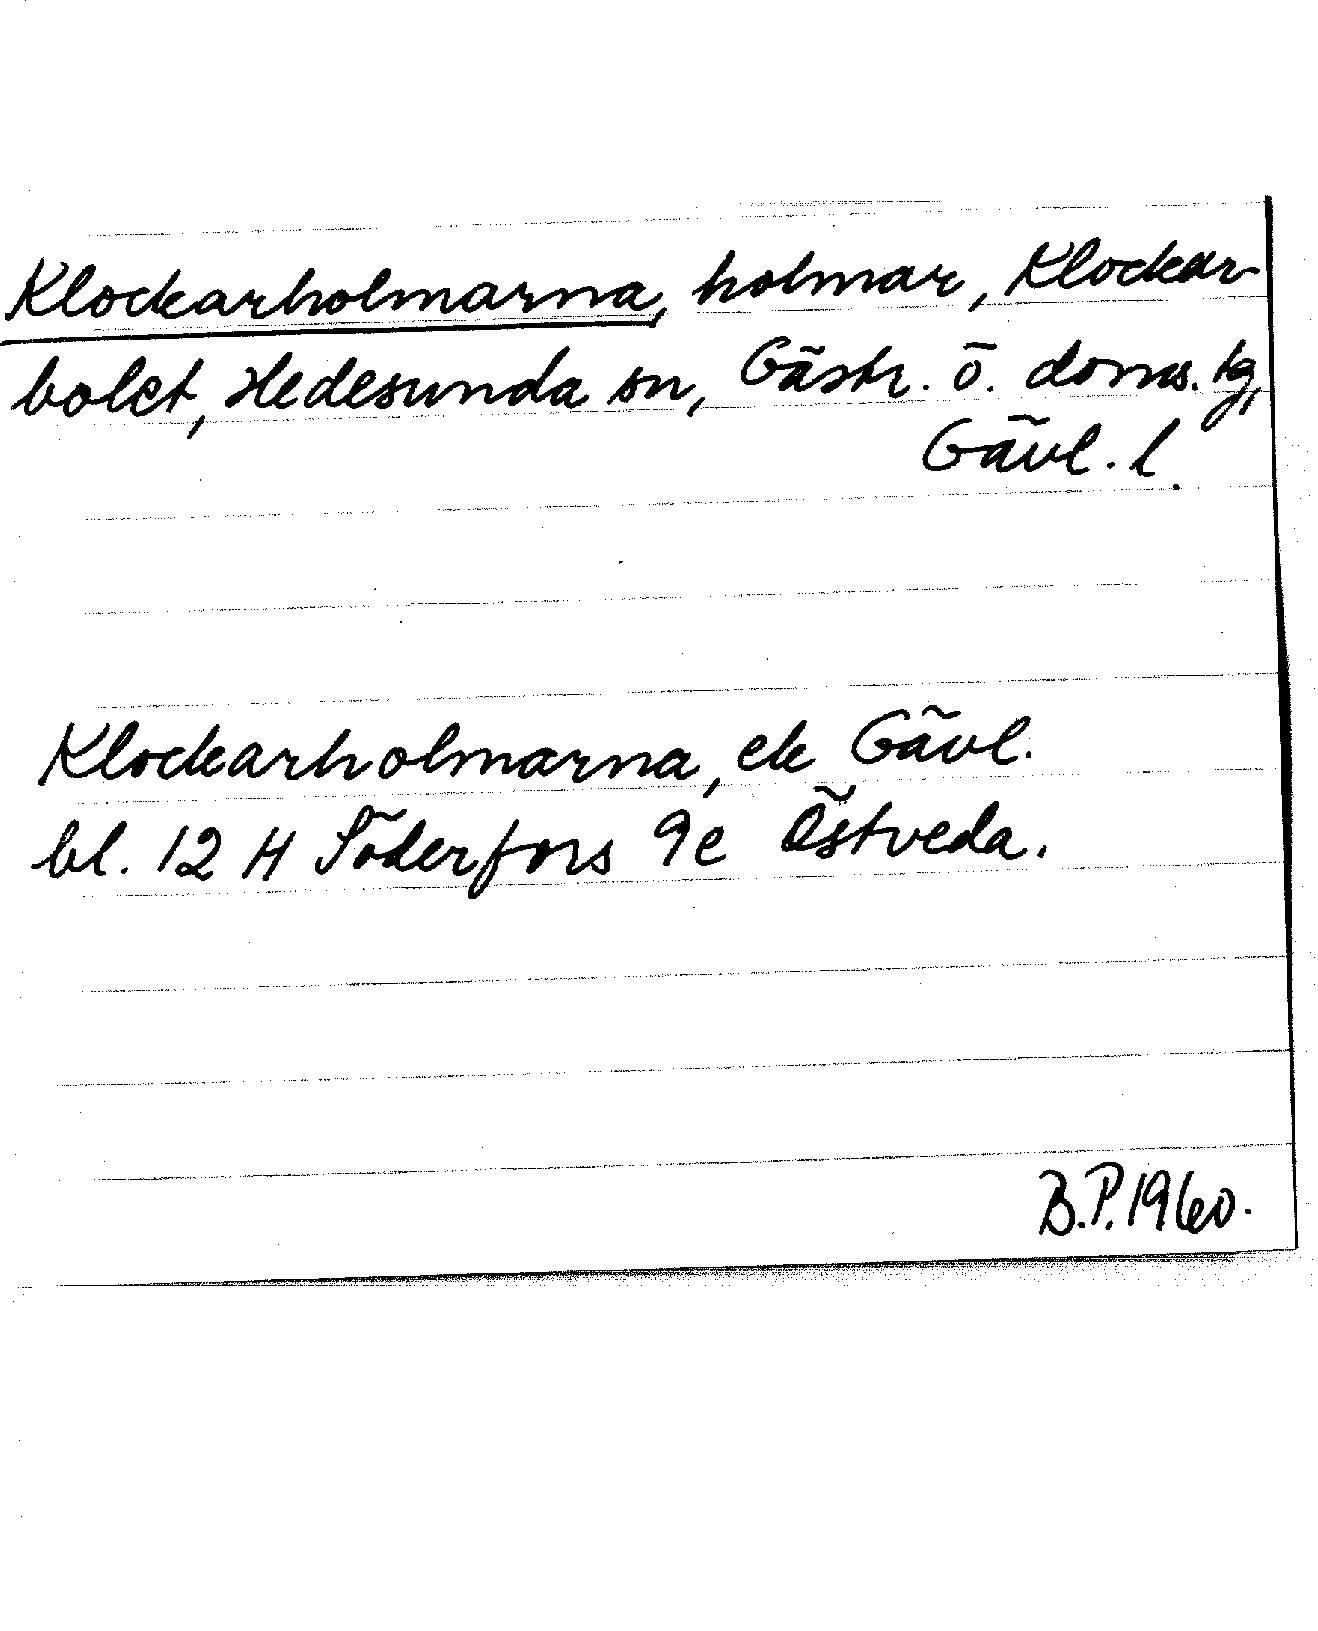 Klockarholmarna, holmar, Klockar-
bolet, Hedesunda sn, Gästr. ö. doms. tg,
Gävl. l.
Klockarholmarna, ek Gävl.
bl. 12 H Söderfors 9e Östveda.
B.P. 1960.